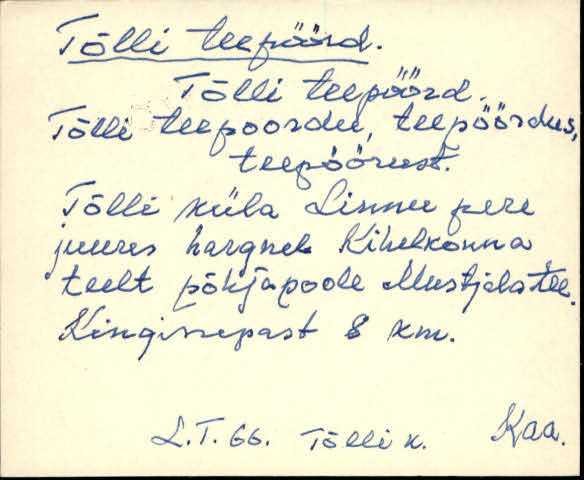 Tõlli teepöörd.
Tõlli teepöörd.
Tõlli teepoordu, teepöördus,
teepöörust.
Tõlli küla Linnu pere
juures hargneb Kihelkonna
teelt põhjapoole Mustjala tee.
Kingissepast 8 km.
L.T. 66. Tõlli k. Kaa.